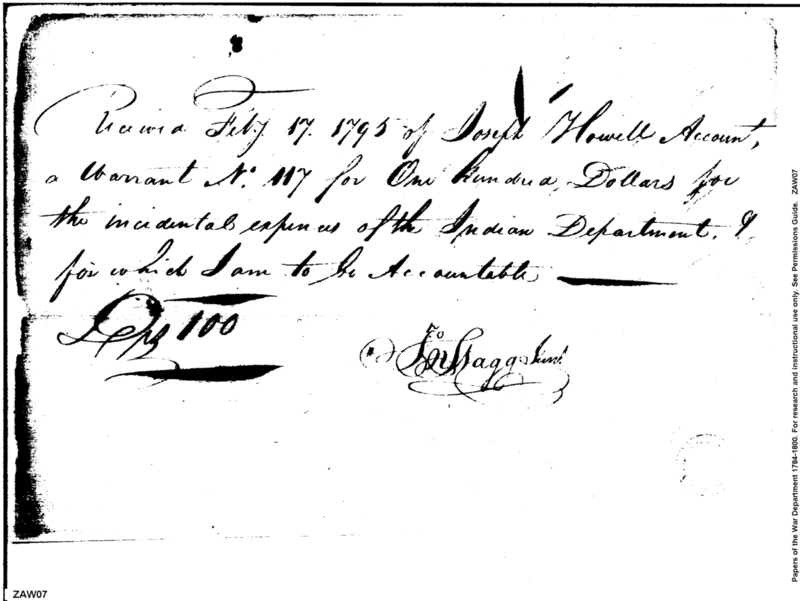 Received Feby 17. 1795 of Joseph Howell Account,
a Warrant No. 117 for One hundred Dollars for
the incidental expences of the Indian Department. &
for which I am to be Accountable
Drs 100
Jno Stagg Junr
Papers of the War Department 1784-1800. For research and instructional use only. See Permissions Guide. ZAW07
ZAW07